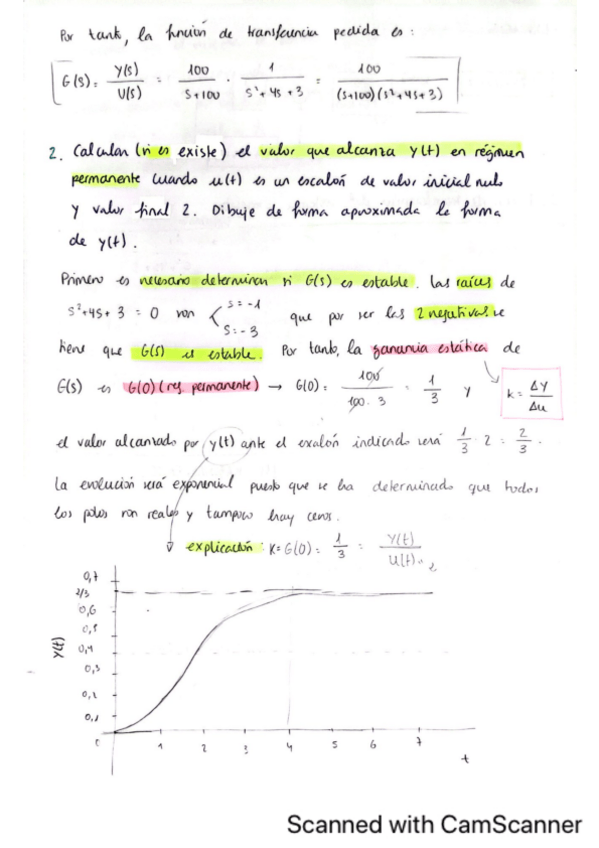 Por tanto, la función de transferencia pedida es:
G(s) = Y(s)/U(s) = 100/(s+100) · 1/(s²+4s+3) = 100/((s+100)(s²+4s+3))
2. Calcular (si es existe) el valor que alcanza y(t) en régimen
permanente cuando u(t) es un escalón de valor inicial nulo
y valor final 2. Dibuje de forma aproximada la forma
de y(t).
Primero es necesario determinar si G(s) es estable. Las raíces de
s²+4s+3 = 0 son s=-1 s=-3 que por ser las 2 negativas se
tiene que G(s) es estable. Por tanto, la ganancia estática de
G(s) es G(0) (reg. permanente) → G(0) = 100/(100·3) = 1/3 y k = ΔY/Δu
el valor alcanzado por y(t) ante el escalón indicado será 1/3 · 2 = 2/3.
La evolución será exponencial puesto que se ha determinado que todos
los polos son reales y tampoco hay ceros.
explicación: K=G(0) = 1/3 = Y(t)/U(t) → 2
0,7
2/3
0,6
0,5
0,4
0,3
0,2
0,1
Y(t)
0 1 2 3 4 5 6 7
t
Scanned with CamScanner